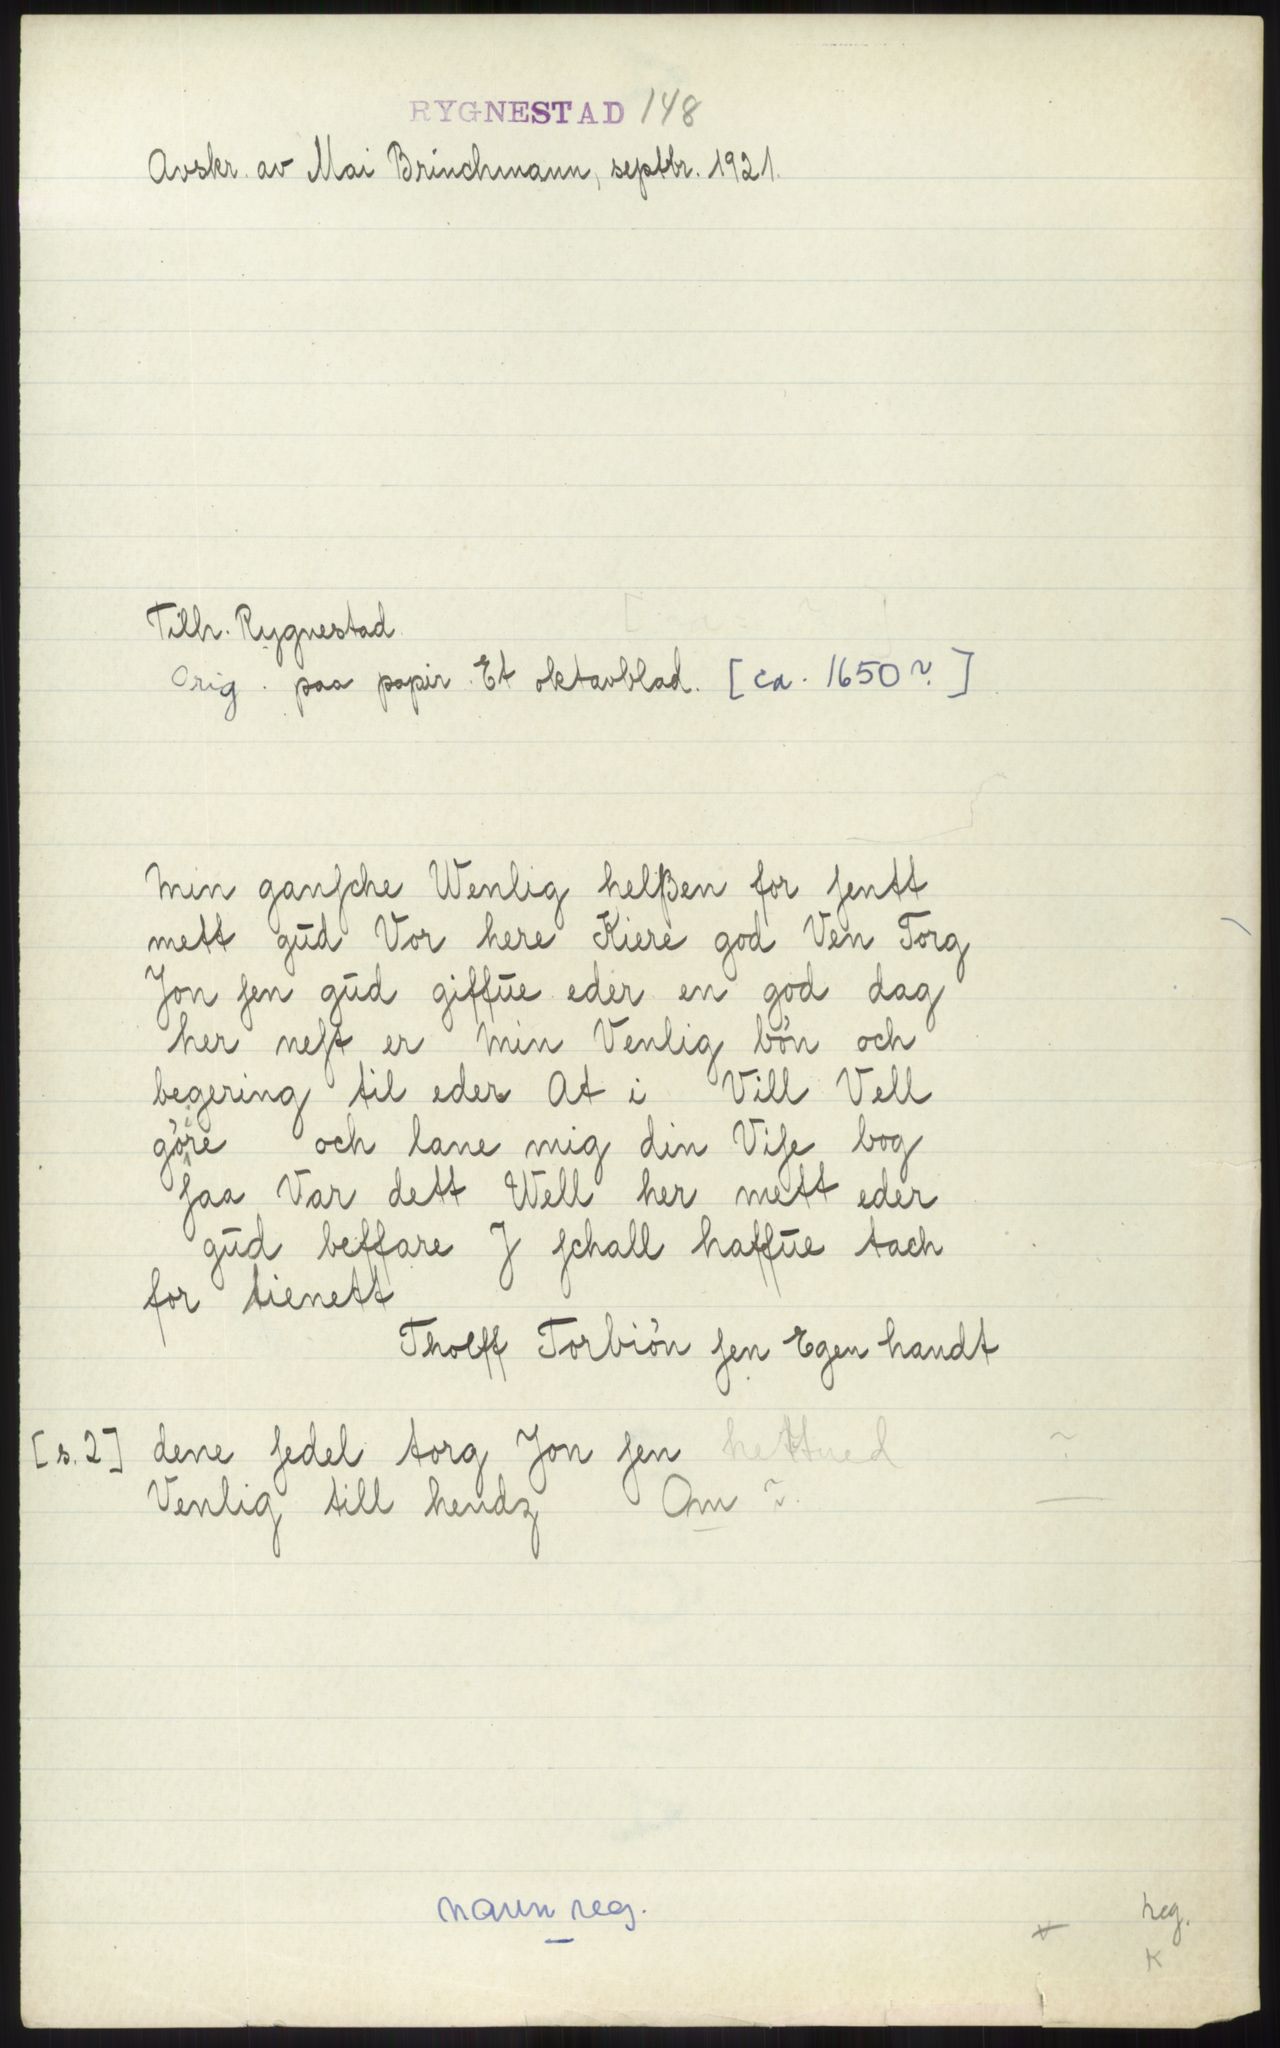 RYGNESTAD 148
Avskr. av Mai Brinchmann, septbr. 1921.
Tilh. Rygnestad.
Orig. paa papir. Et oktavblad. [ca. 1650?]
Min ganſche Wenlig helßen for ſentt
mett gūd Vor here Kiere god Ven Torg
Jon ſen gūd giffūe eder en god dag
her neſt er Min Venlig bön och
begering til eder At i Vill Vell
göre och lane mig din Viſe bog
ſaa Var dett Well her mett eder
gūd beffare J ſchall haffūe tach
for tienett
Tholff Torbiön ſen Egen handt
[s. 2] dene ſedel torg Jon ſen hettued ?
Venlig till hendz Om ?
navn reg.
reg.
K